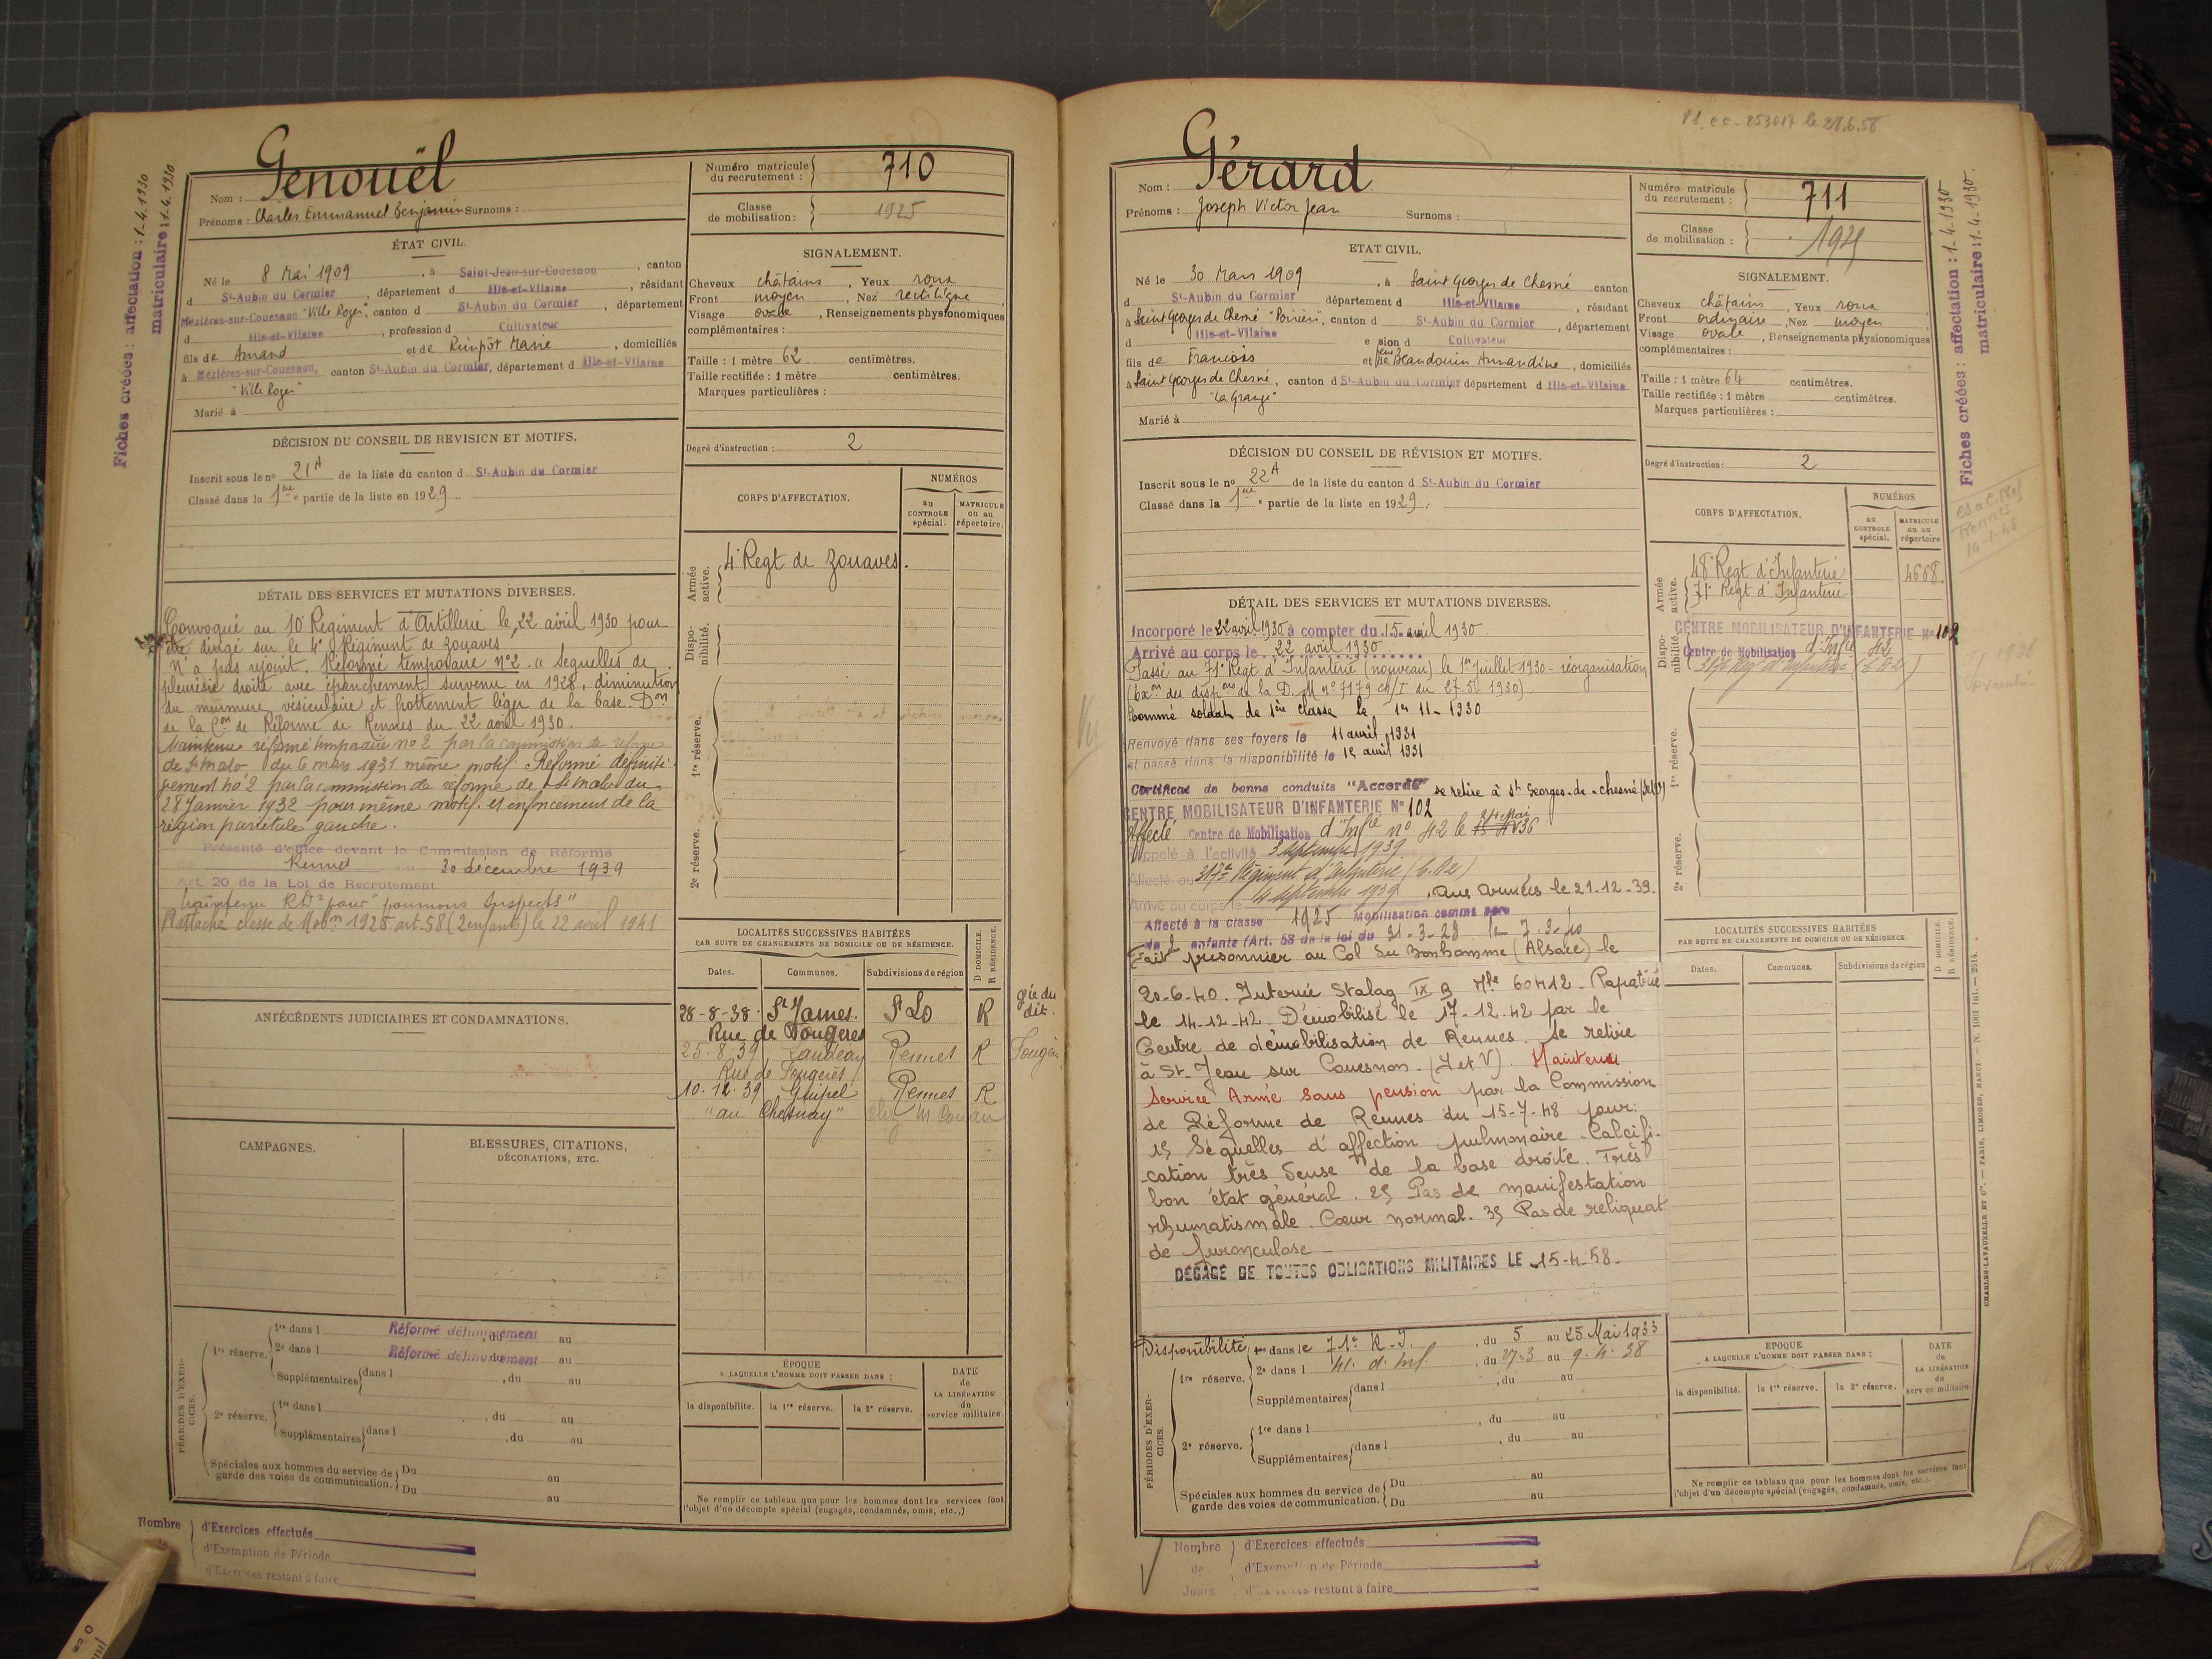 Fiches créées : affectation : 1-4-1930
matriculaire : 1-4-1930
Nom : Genouël
Prénoms : Charles Emmanuel Benjamin Surnoms :
Numéro matricule du recrutement : 710
Classe de mobilisation : 1925
ÉTAT CIVIL.
Né le 8 Mai 1909, à Saint-Jean-sur-Couesnon, canton
d St-Aubin du Cormier, département d Ille-et-Vilaine, résidant
Mézières-sur-Couesnon "Ville Roger", canton d St-Aubin du Cormier, département
d Ille-et-Vilaine, profession d Cultivateur
fils de Amand et de Rimpôt Marie, domiciliés
à Mézières-sur-Couesnon, canton St-Aubin du Cormier, département d Ille-et-Vilaine
"Ville Roger"
Marié à
SIGNALEMENT.
Cheveux châtains, Yeux roux
Front moyen, Nez rectiligne
Visage ovale, Renseignements physionomiques
complémentaires :
Taille : 1 mètre 62 centimètres.
Taille rectifiée : 1 mètre centimètres.
Marques particulières :
Degré d'instruction : 2
DÉCISION DU CONSEIL DE REVISION ET MOTIFS.
Inscrit sous le no 21A de la liste du canton d St-Aubin du Cormier
Classé dans la 1ère partie de la liste en 1929.
CORPS D'AFFECTATION.
NUMÉROS
au CONTROLE spécial.
MATRICULE ou au répertoire.
Armée active.
4e Regt de Zouaves.
Disponibilité.
1re réserve.
2e réserve.
DÉTAIL DES SERVICES ET MUTATIONS DIVERSES.
Convoqué au 10e Régiment d'Artillerie le 22 avril 1930 pour
être dirigé sur le 4e Régiment de zouaves
N'a pas rejoint. Réformé temporaire n°2. "Sequelles de
pleurésie droite avec épanchement survenu en 1928, diminution
du murmure vésiculaire et frottement léger de la base. Don
de la Con de Réforme de Rennes du 22 avril 1930.
Maintenu réformé temporaire no 2 par la commission de réforme
de St Malo du 6 mars 1931 même motif. Réformé définiti-
vement no 2 par la commission de réforme de St Malo du
28 Janvier 1932 pour même motif. et enfoncement de la
région pariétale gauche.
Présenté d'office devant la Commission de Réforme
de Rennes 30 décembre 1939
Art. 20 de la Loi de Recrutement
Maintenu RD2 pour "poumons suspects"
Rattaché classe de Mobon 1925 art. 58 (2 enfants) le 22 avril 1941
LOCALITÉS SUCCESSIVES HABITÉES
PAR SUITE DE CHANGEMENTS DE DOMICILE OU DE RÉSIDENCE.
D DOMICILE.
R RÉSIDENCE.
Dates. Communes. Subdivisions de région
28-8-38. St James. St Lô R
Rue de Fougères
25-8-39 Landéan Rennes R
Rue de Fougères
10-12-39 Guipel Rennes R
"au Chesnay"
ANTÉCÉDENTS JUDICIAIRES ET CONDAMNATIONS.
CAMPAGNES.
BLESSURES, CITATIONS,
DÉCORATIONS, ETC.
PÉRIODES D'EXERCICES.
1re réserve.
1re dans l Réformé définitivement, du au
2e dans l Réformé définitivement, du au
Supplémentaires dans l , du au
2e réserve.
1re dans l , du au
Supplémentaires dans l , du au
Spéciales aux hommes du service de garde des voies de communication.
Du au
Du au
ÉPOQUE
A LAQUELLE L'HOMME DOIT PASSER DANS :
la disponibilité. la 1re réserve. la 2e réserve.
DATE de LA LIBÉRATION du service militaire.
Ne remplir ce tableau que pour les hommes dont les services font
l'objet d'un décompte spécial (engagés, condamnés, omis, etc.,)
Nombre
d'Exercices effectués
d'Exemption de Période
d'Exercices restant à faire
Nom : Gérard
Prénoms : Joseph Victor Jean Surnoms :
Numéro matricule du recrutement : 711
Classe de mobilisation : 1925
Fiches créées : affectation : 1-4-1930
matriculaire : 1-4-1930.
ETAT CIVIL.
Né le 30 Mars 1909, à Saint Georges de Chesné canton
d St-Aubin du Cormier département d Ille-et-Vilaine, résidant
à Saint Georges de Chesné, canton d St-Aubin du Cormier, département
d Ille-et-Vilaine e sion d Cultivateur
fils de François et feue Beaudouin Amandine, domiciliés
à Saint Georges de Chesné, canton d St-Aubin du Cormier département d Ille-et-Vilaine
"La Grange"
Marié à
SIGNALEMENT.
Cheveux châtains, Yeux roux
Front ordinaire, Nez moyen
Visage ovale, Renseignements physionomiques
complémentaires :
Taille : 1 mètre 64 centimètres.
Taille rectifiée : 1 mètre centimètres.
Marques particulières :
Degré d'instruction : 2
DÉCISION DU CONSEIL DE RÉVISION ET MOTIFS.
Inscrit sous le no 22A de la liste du canton d St-Aubin du Cormier
Classé dans la 1ère partie de la liste en 1929.
CORPS D'AFFECTATION.
NUMÉROS
au CONTROLE spécial.
MATRICULE ou au répertoire
Armée active.
48e Regt d'Infanterie 4668.
71e Regt d'Infanterie
Disponibilité.
CENTRE MOBILISATEUR D'INFANTERIE No 102
Centre de Mobilisation d'Infie 42
1re réserve.
2e réserve.
DÉTAIL DES SERVICES ET MUTATIONS DIVERSES.
Incorporé le 22 avril 1930 à compter du 15 avril 1930
Arrivé au corps le 22 avril 1930
Passé au 71e Regt d'Infanterie (nouveau) le 1er Juillet 1930 - réorganisation
Nommé soldat de 1ère classe le 1er 11-1930
Renvoyé dans ses foyers le 11 avril 1931
et passé dans la disponibilité le 15 avril 1931
Certificat de bonne conduite "Accordé" se retire à St Georges-de-chesné (I et V)
CENTRE MOBILISATEUR D'INFANTERIE No 102
Affecté Centre de Mobilisation d'Infie no 42 le 24 Mai 36
Rappelé à l'activité 3 septembre 1939
Affecté au 317e Régiment d'Infanterie
Arrivé au corps le 4 septembre 1939, aux armées le 21-12-39.
Affecté à la classe 1925 Mobilisation comme père
de 2 enfants (Art. 58 de la loi du 31-3-28 le 7-3-40
Fait prisonnier au Col du Bonhomme (Alsace) le
20-6-40. Interné Stalag IX B Mle 60412. Rapatrié
le 14-12-42. Démobilisé le 17-12-42 par le
Centre de démobilisation de Rennes. Se retire
à St. Jean sur Couesnon. (I et V). Maintenu
Service Armé sans pension par la Commission
de Réforme de Rennes du 15-7-48 pour:
1) Séquelles d'affection pulmonaire. Calcifi-
cation très dense de la base droite. Très
bon état général. 2) Pas de manifestation
rhumatismale. Cœur normal. 3) Pas de reliquat
de furonculose
DÉGAGÉ DE TOUTES OBLIGATIONS MILITAIRES LE 15-4-58.
LOCALITÉS SUCCESSIVES HABITÉES
PAR SUITE DE CHANGEMENTS DE DOMICILE OU DE RÉSIDENCE.
D DOMICILE.
R RÉSIDENCE.
Dates. Communes. Subdivisions de région
PÉRIODES D'EXERCICES.
Disponibilité 1re dans le 71e R.I., du 5 au 25 Mai 1933
1re réserve. 2e dans l, du 27-3 au 9.4.38
Supplémentaires dans l , du au
2e réserve.
1re dans l , du au
Supplémentaires dans l , du au
Spéciales aux hommes du service de garde des voies de communication.
Du au
Du au
EPOQUE
A LAQUELLE L'HOMME DOIT PASSER DANS :
la disponibilité. la 1re réserve. la 2e réserve.
DATE de LA LIBÉRATION du service militaire
Ne remplir ce tableau que pour les hommes dont les services font
l'objet d'un décompte spécial (engagés, condamnés, omis, etc.).
CHARLES-LAVAUZELLE ET Cie. — PARIS, LIMOGES, NANCY.
Nombre de Jours
d'Exercices effectués
d'Exemption de Période
d'Exercices restant à faire